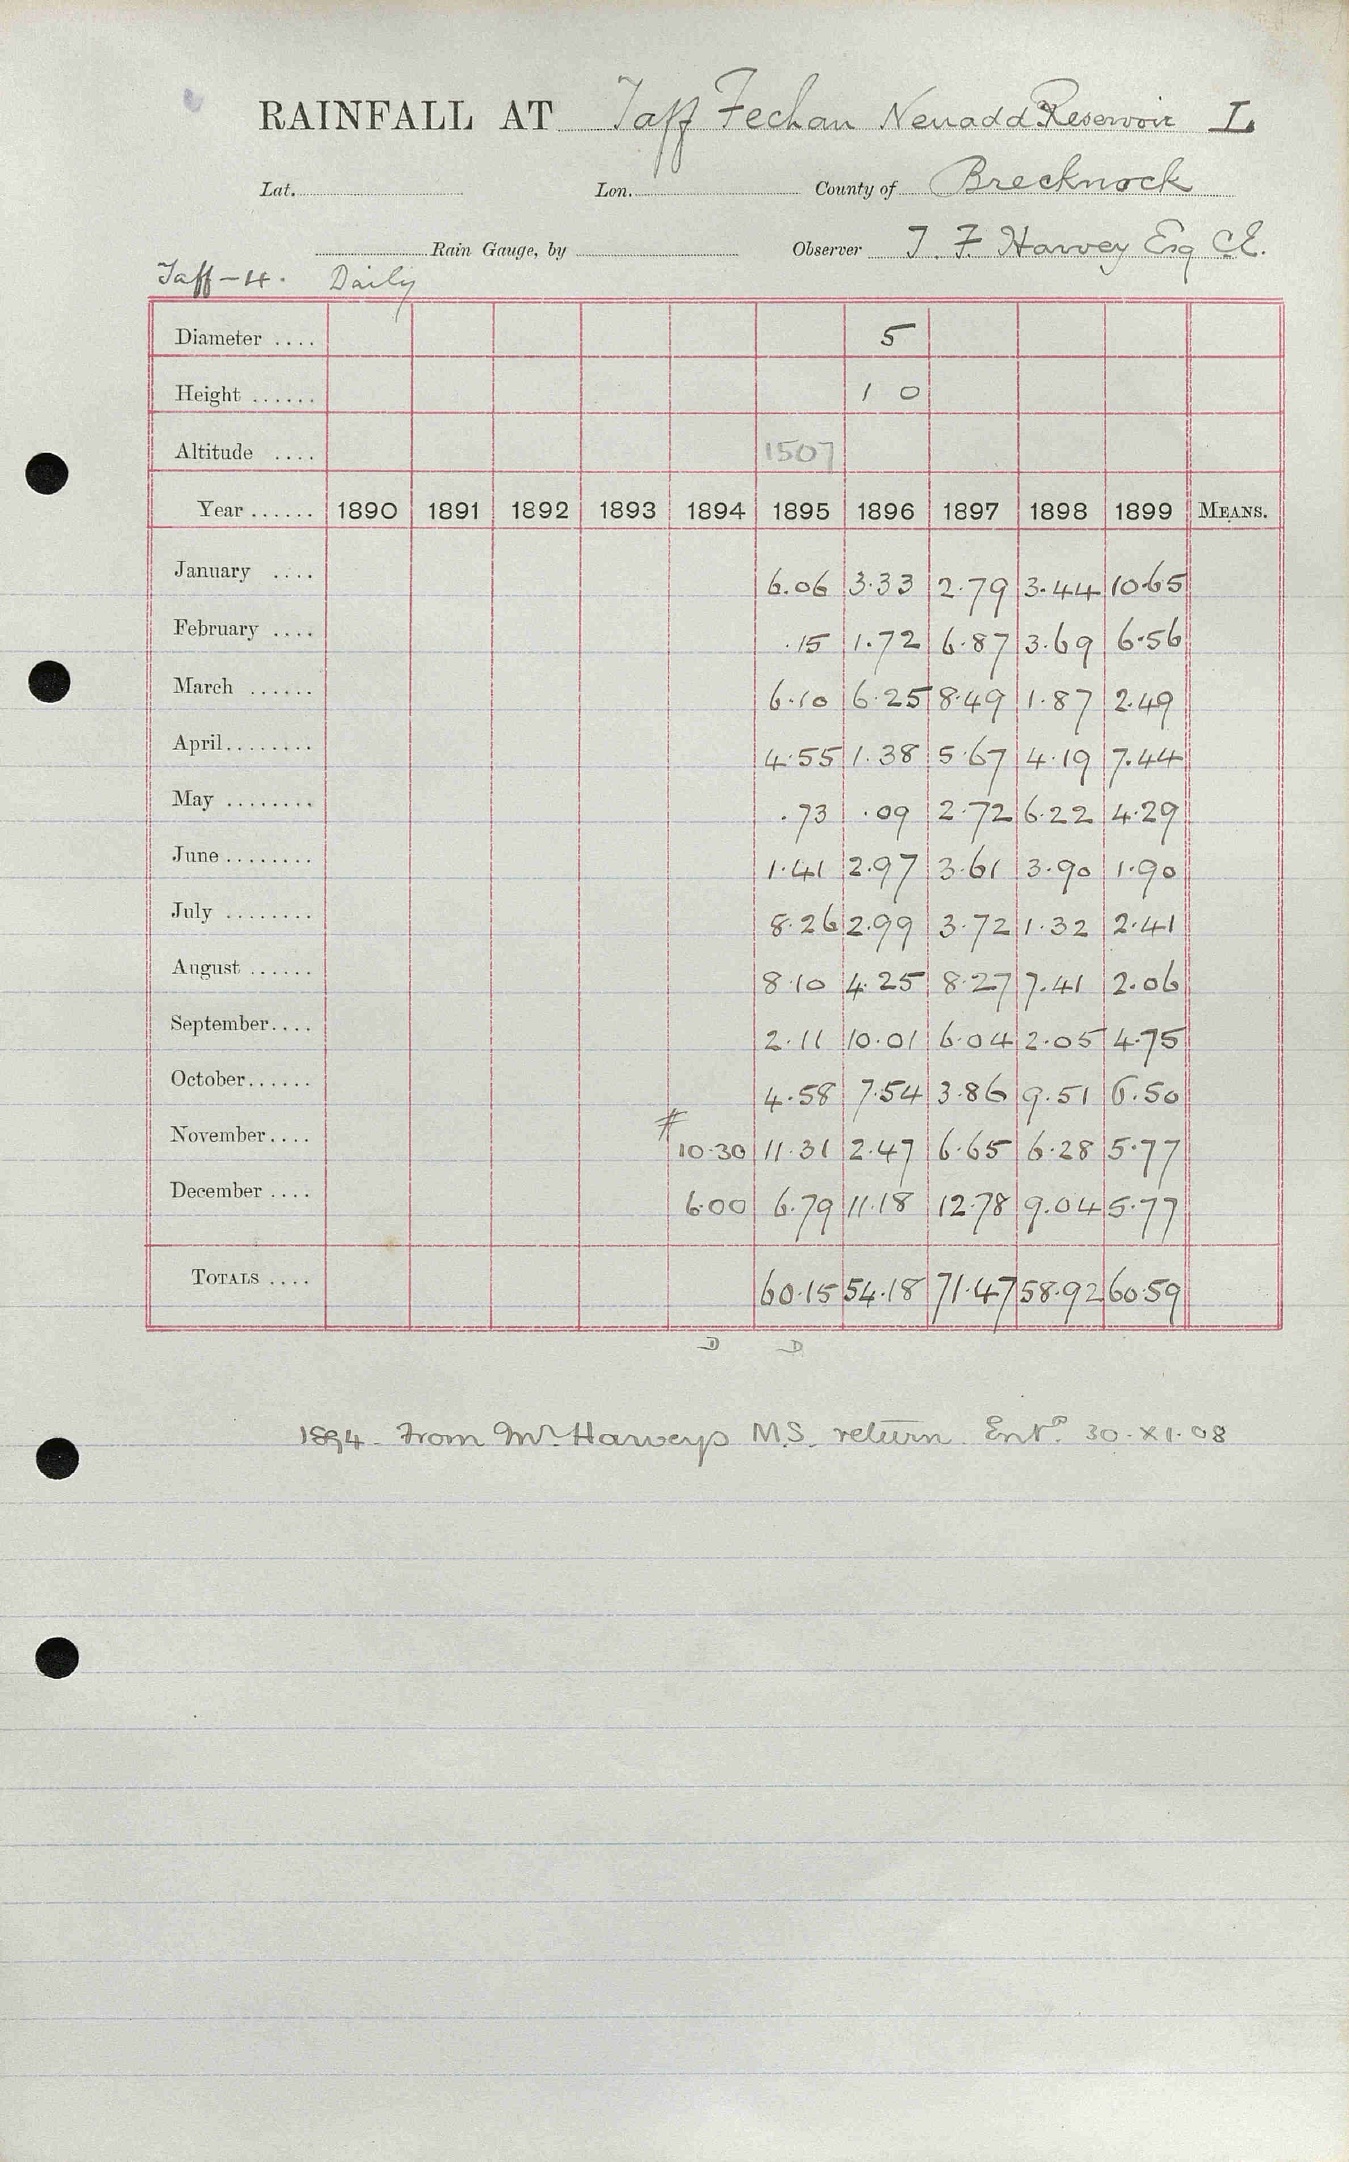 RAINFALL AT Taff Fechan Neuadd Reservoir L
Lat. Lon. County of Brecknock
Rain Gauge, by Observer T. F. Harvey Esq C.E.
Taff-4. Daily
Diameter .... 5
Height ...... 1 0
Altitude .... 1507
Year ...... 1890 1891 1892 1893 1894 1895 1896 1897 1898 1899 MEANS.
January .... 6.06 3.33 2.79 3.44 10.65
February .... .15 1.72 6.87 3.69 6.56
March ...... 6.10 6.25 8.49 1.87 2.49
April........ 4.55 1.38 5.67 4.19 7.44
May ........ .73 .09 2.72 6.22 4.29
June ........ 1.41 2.97 3.61 3.90 1.90
July ........ 8.26 2.99 3.72 1.32 2.41
August ...... 8.10 4.25 8.27 7.41 2.06
September.... 2.11 10.01 6.04 2.05 4.75
October...... 4.58 7.54 3.86 9.51 6.50
November.... # 10.30 11.31 2.47 6.65 6.28 5.77
December .... 6.00 6.79 11.18 12.78 9.04 5.77
TOTALS .... 60.15 54.18 71.47 58.92 60.59
D D
1894. From Mr. Harveys M.S. return. Entd. 30.XI.08